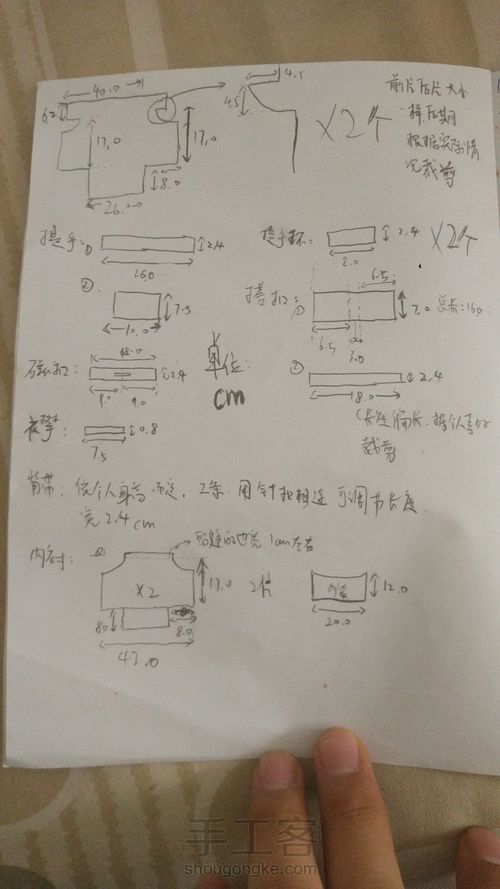 40.0
4.5
前片后片大小
6.2
4.5
一样后期
17.0
17.0
X2个
根据实际情
况裁剪
8.0
26.0
提手:①
2.4
提手环:
2.4
X2个
26.0
8.0
②
7.5
搭扣:①
6.5
7.0
总长:16.0
10.0
6.5
3.0
磁扣:
18.0
2.4
单位:
cm
②
2.4
9.0
9.0
18.0
0.8
(长度偏长.据个人喜好
裁剪
7.5
背带:依个人身高而定,2条.用针扣相连可调节长度
宽2.4cm
内衬:
1cm左右
X2
17.0
2份
内袋
12.0
8.0
8.0
20.0
47.0
手工客
shougongke.com